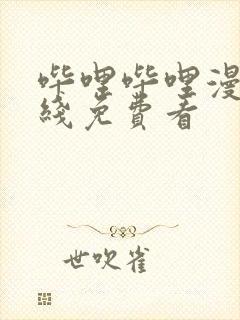 哔哩哔哩漫
线免费看
世吹雀